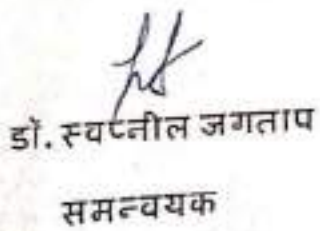 डॉ. स्वप्नील जगताप
समन्वयक